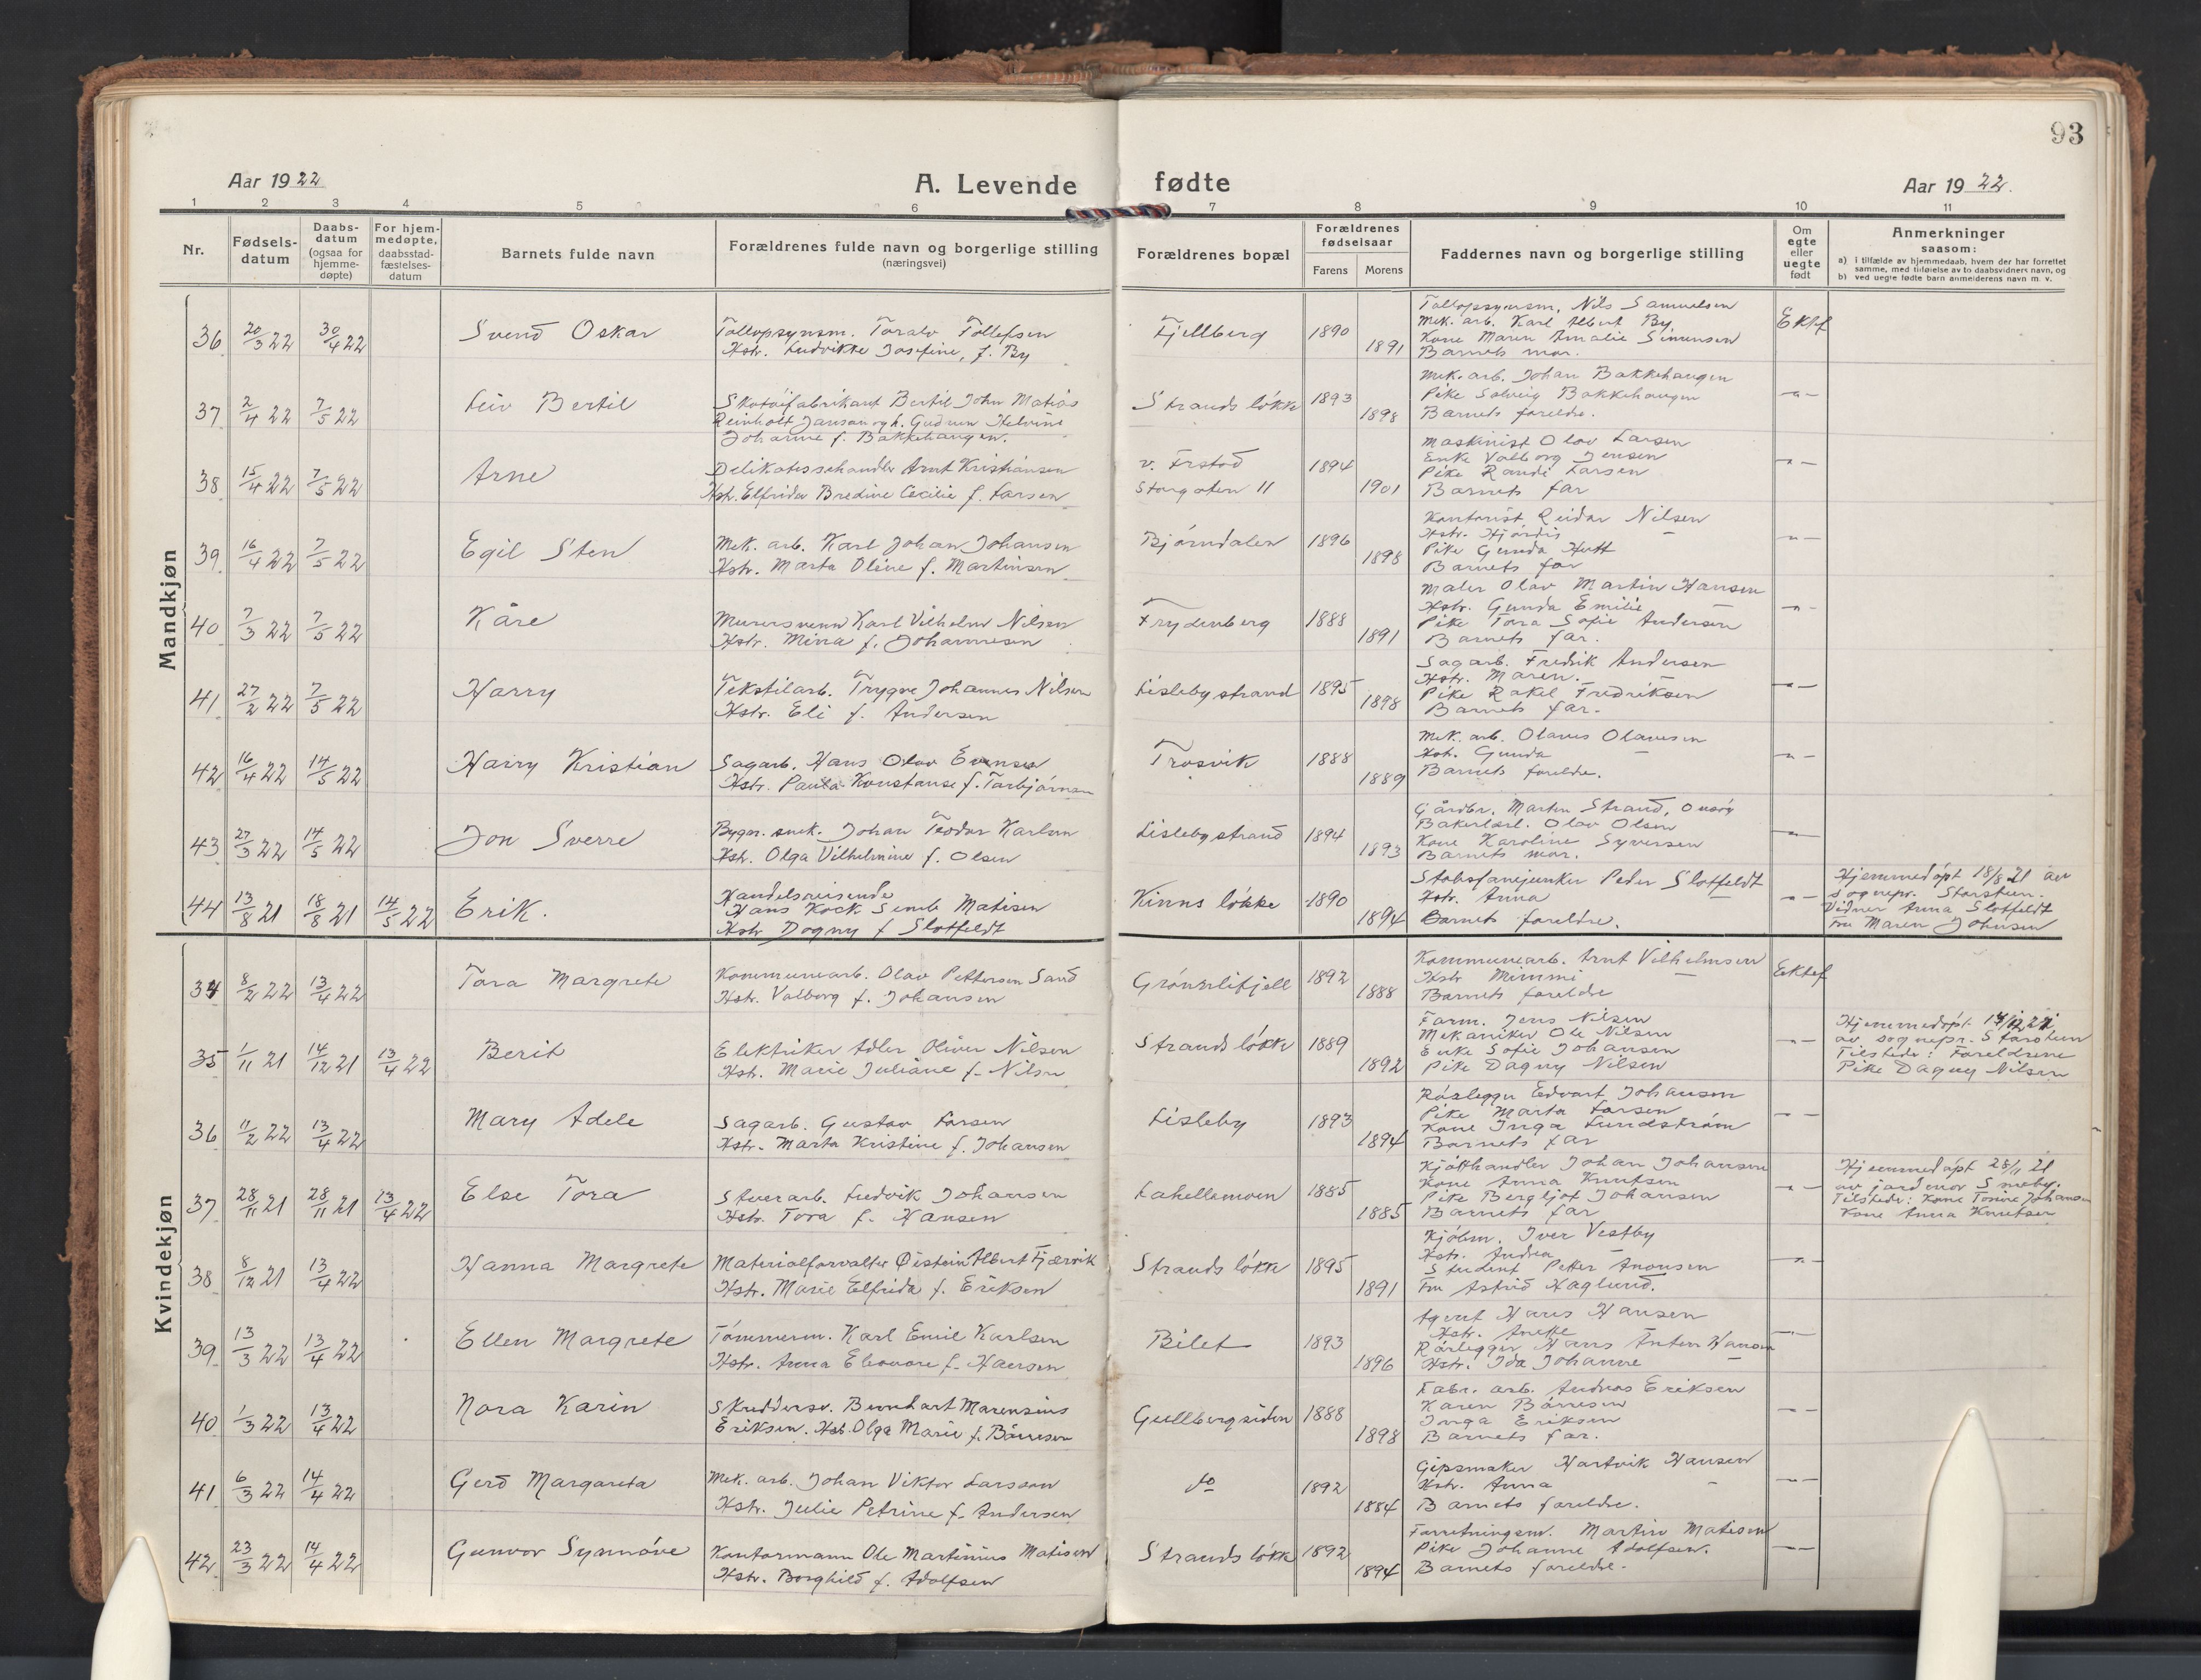 93
Aar 1922
A. Levende fødte
Aar 1922.
1 2 3 4 5 6 7 8 9 10 11
Nr.
Fødsels-datum
Daabs-datum (ogsaa for hjemme-døpte)
For hjem-medøpte, daabsstad-fæstelses-datum
Barnets fulde navn
Forældrenes fulde navn og borgerlige stilling (næringsvei)
Forældrenes bopæl
Forældrenes fødselsaar
Farens Morens
Faddernes navn og borgerlige stilling
Om egte eller uegte født
Anmerkninger saasom:
a) i tilfælde av hjemmedaab, hvem der har forrettet samme, med tilføielse av to daabsvidners navn, og
b) ved uegte fødte barn anmelderens navn m. v.
Mandkjøn
36 20/3 22 30/4 22 Svend Oskar
Tollopsynsm. Toralv Tollefsen
Hstr. Ludvikke Josefine, f. By
Fjellberg 1890 1891
Tollopsynsm. Nils Samuelsen
Mek. arb. Karl Albert By.
Kone Maren Amalie Simensen
Barnets mor.
Ektef
37 2/4 22 7/5 22 Leiv Bertil
Skotøifabrikant Bertil John Matias
Reinholt Janson og h. Gudrun Helvine
Johanne f. Bakkehaugen.
Strands løkke 1893 1898
Mek. arb. Johan Bakkehaugen
Pike Solveig Bakkehaugen
Barnets foreldre.
-"-
38 15/4 22 7/5 22 Arne
Delikatessehandler Arnt Kristiansen
Hstr. Elfrida Bredine Cecilie f. Larsen
v. Frstad
Storgaten 11
1894 1901
Maskinist Olav Larsen
Enke Valborg Jensen
Pike Randi Larsen
Barnets far
-"-
39 16/4 22 7/5 22 Egil Sten
Mek. arb. Karl Johan Johansen
Hstr. Marta Oline f. Martinsen
Bjørndalen 1896 1898
Kontorist Reidar Nilsen
Hstr. Hjørdis -
Pike Gunda Hutt
Barnets far
-"-
40 7/3 22 7/5 22 Kåre
Murersvenn Karl Vilhelm Nilsen
Hstr. Minna f. Johannesen
Frydenberg 1888 1891
Maler Olav Martin Hansen
Hstr. Gunda Emilie -
Pike Tora Sofie Andersen
Barnets far.
-"-
41 27/2 22 7/5 22 Harry
Tekstilarb. Trygve Johannes Nilsen
Hstr. Eli f. Andersen
Lisleby strand 1895 1898
Sagarb. Fredrik Andersen
Hstr. Maren. -
Pike Rakel Fredriksen
Barnets far.
-"-
42 16/4 22 14/5 22 Harry Kristian
Sagarb. Hans Olav Evensen
Hstr. Paula Konstanse f. Torbjørnsen
Trosvik 1888 1889
Mek. arb. Olaves Olavesen
Hstr. Gunda -
Barnets foreldre.
-"-
43 27/3 22 14/5 22 Jon Sverre
Bygn. snek. Johan Teodor Karlsen
Hstr. Olga Vilhelmine f. Olsen
Lisleby strand 1894 1893
Gårdbr. Marten Strand, Onsøy
Bakerlærl. Olav Olsen
Kone Karoline Syversen
Barnets mor.
-"-
44 13/8 21 18/8 21 14/5 22 Erik.
Handelsreisende
Hans Kock Semb Matisen
Hstr Dagny f Slotfeldt
Kinns løkke 1890 1894
Stabsfanejunker Peder Slotfeldt
Hstr. Anna -
Barnets foreldre.
-"-
Hjemmedøpt 18/8 21 av
sognepr. Storsteen.
Vidner Anna Slotfeldt
Fru Maren Johnsen
Kvindekjøn
34 8/2 22 13/4 22 Tora Margrete
Kommunearb. Olav Pettersen Sand
Hstr. Valborg f. Johansen
Grønnlifjell 1892 1888
Kommunearb. Arnt Vilhelmsen
Hstr Mimmi -
Barnets foreldre
Ektef
35 1/11 21 14/12 21 13/4 22 Berit
Elektriker Adler Oliver Nilsen
Hstr. Marie Juliane f. Nilsen
Strands løkke 1889 1892
Farm. Jens Nilsen
Mekaniker Ole Nilsen
Enke Sofie Johansen
Pike Dagny Nilsen
-"-
Hjemmedøpt 14/12 21
av sognepr. Storsteen
Tilstede: Foreldrene
Pike Dagny Nilsen
36 11/2 22 13/4 22 Mary Adele
Sagarb. Gustav Larsen
Hstr. Marta Kristine f. Johansen
Lisleby 1893 1894
Rørlegger Edvart Johansen
Pike Marta Larsen
Kone Inga Lundstrøm
Barnets far
-"-
37 28/11 21 28/11 21 13/4 22 Else Tora
Stuerarb. Ludvik Johansen
Hstr. Tora f. Hansen
Lahellemoen 1885 1885
Kjøtthandler Johan Johansen
Kone Anna Knutsen
Pike Bergljot Johansen
Barnets far
-"-
Hjemmedøpt 28/11 21
av jordmor Smeby.
Tilstede: Kone Tomine Johansen
Kone Anna Knutsen
38 8/12 21 13/4 22 Hanna Margrete
Materialforvalter Øistein Albert Fjærvik
Hstr. Marie Elfrida f. Eriksen
Strands løkke 1895 1891
Kjøbm. Iver Vestby
Hstr. Andrea -
Student Petter Aronsen
Fru Astrid Haglund.
-"-
39 13/3 22 13/4 22 Ellen Margrete
Tømmerm. Karl Emil Karlsen
Hstr. Anna Eleonore f. Hansen
Bilet 1893 1896
Agent Hans Hansen
Hstr. Anette -
Rørlegger Hans Anton Hansen
Hstr. Ida Johanne -
-"-
40 1/3 22 13/4 22 Nora Karin
Skreddersv. Bernhart Marensius
Eriksen. Hstr. Olga Marie f. Børresen
Gullbergsiden 1888 1898
Fabr. arb. Andreas Eriksen
Karen Børresen
Inga Eriksen
Barnets far.
-"-
41 6/3 22 14/4 22 Gerd Margareta
Mek. arb. Johan Viktor Larsson
Hstr. Julie Petrine f. Andersen
do 1892 1884
Gipsmaker Hartvik Hansen
Hstr. Anna -
Barnets foreldre.
-"-
42 23/3 22 14/4 22 Gunvor Synnøve
Kontormann Ole Martinius Matisen
Hstr. Borghild f. Adolfsen
Strands løkke 1892 1894
Forretningsm. Martin Matisen
Pike Johanne Adolfsen.
Barnets foreldre.
-"-